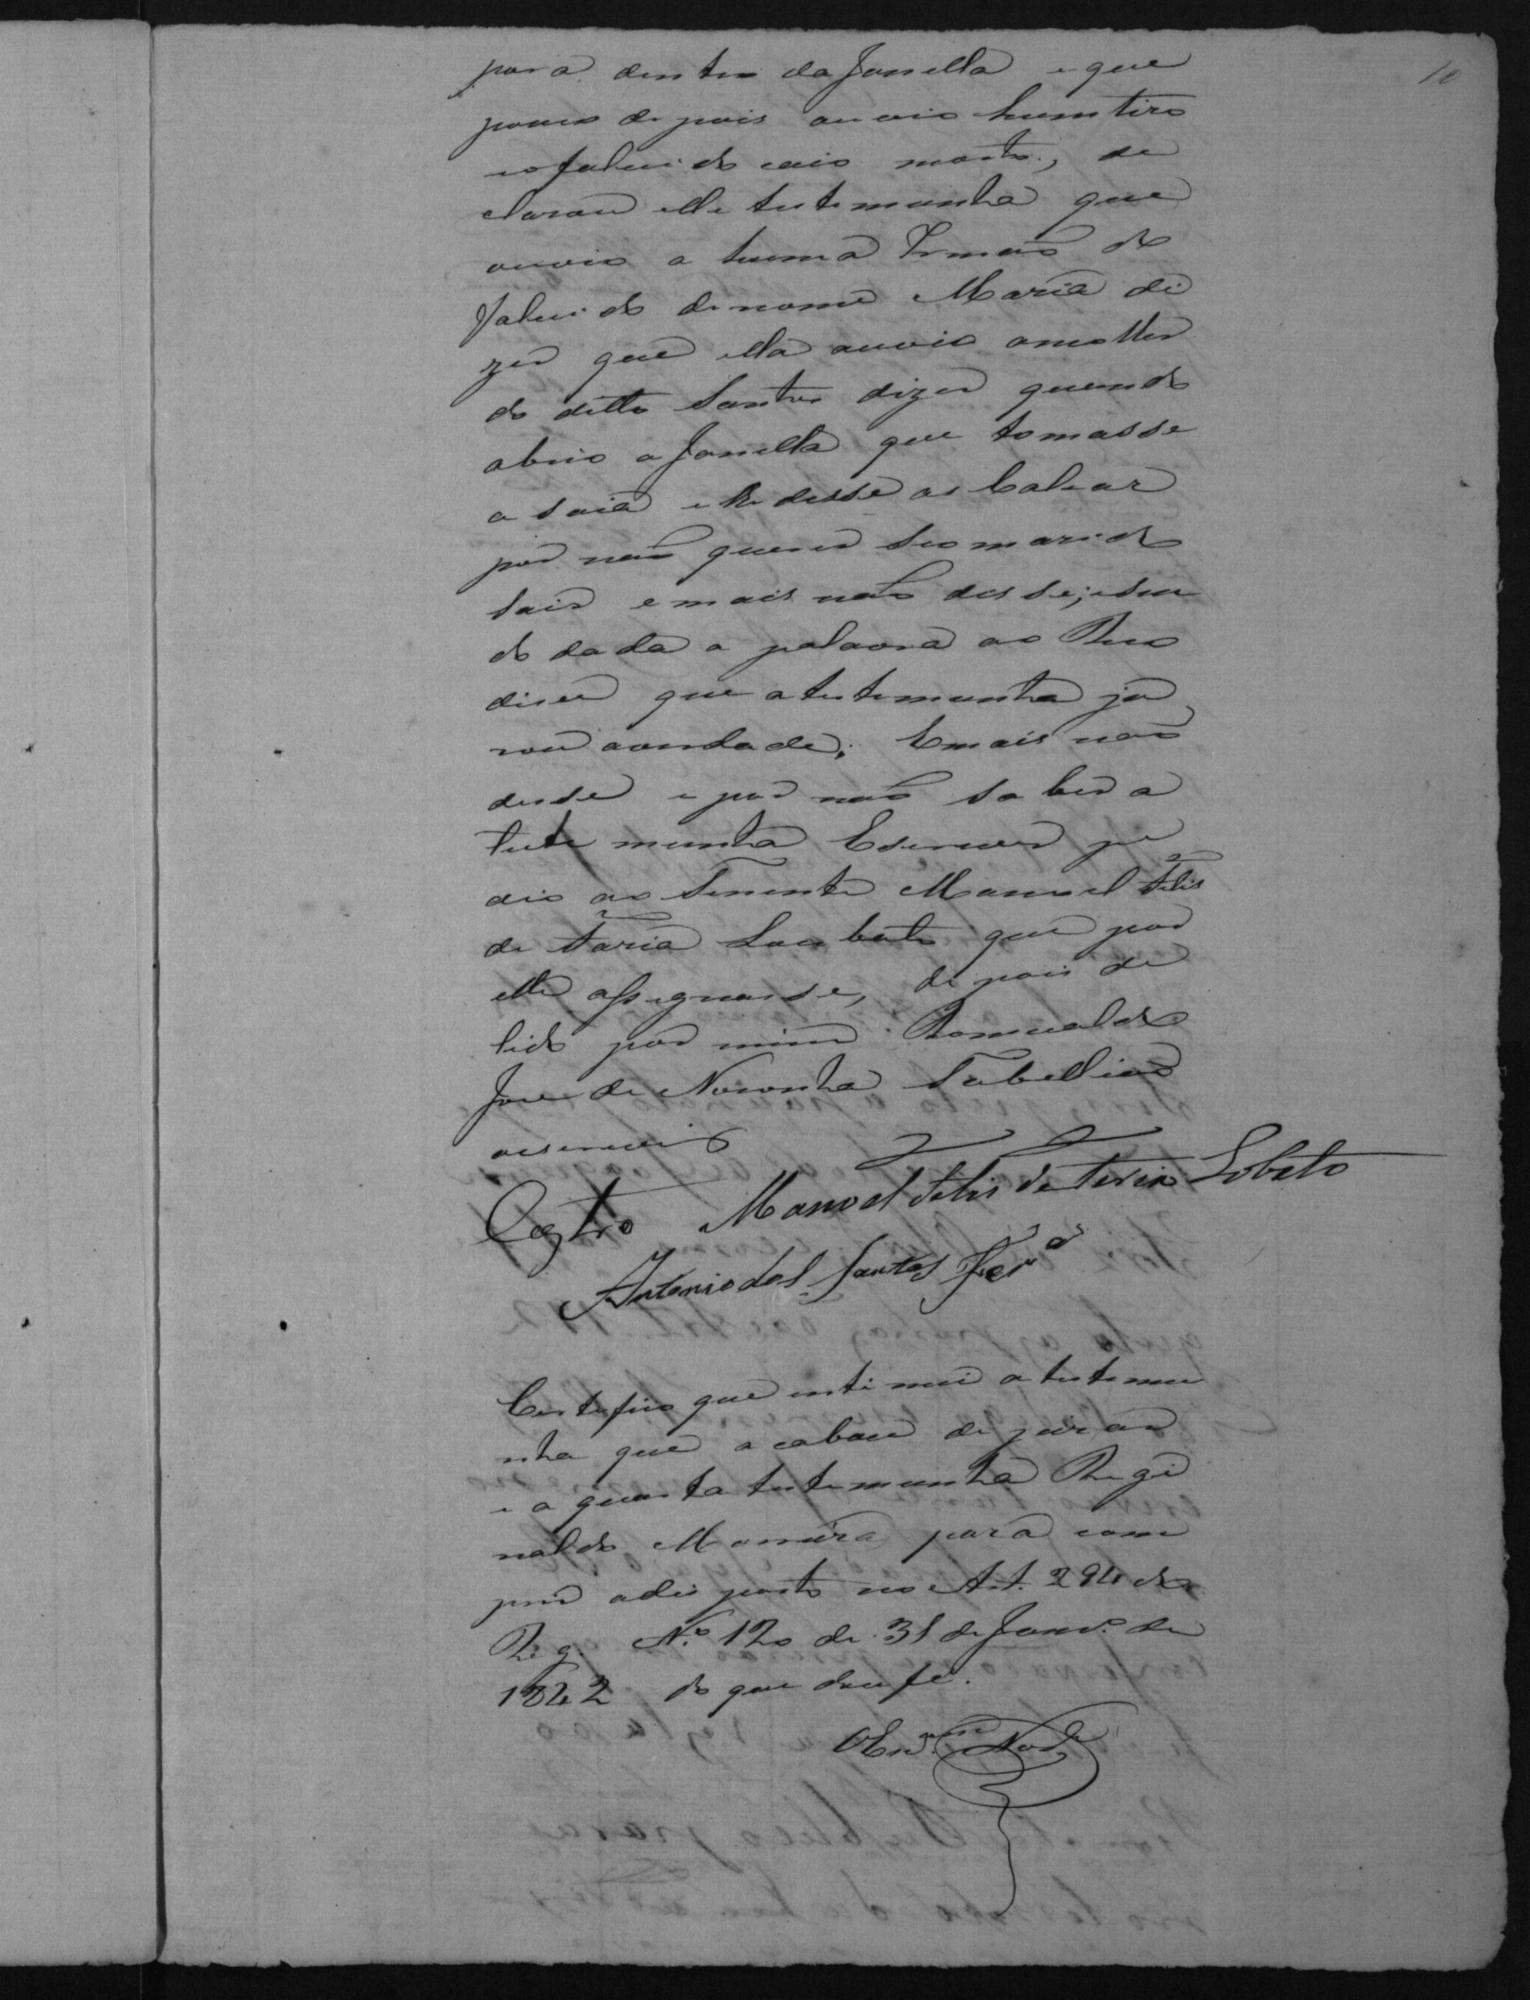 10
para dentro da Janella e que
pouco depois ouvio hum tiro
e o falecido caio morto, de
clarou elle testemunha que
ouvio a huma Irmão do
falecido de nome Maria di
zer que ella ouvio a molher
do ditto Santos dizer quando
abrio a Janella que tomasse
a saia e lhe desse as Calsar
por não querer seo marido
sair e mais não disse; e sen
do dada a palavra ao Reo
disce que a testemunha ju
rou a verdade; E mais não
disse e por não saber a
testemunha Escrever pe
dio ao Tenente Manoel Felis
de Faria Loubato que por
elle assignasse, depois de
lido por mim Romualdo
Jose de Noronha Tabellião
o escrevi
Castro Manoel Felis de Faria Lobato
Antonio dos Santos Ferª
Certefico que intimei a testemu
nha que acabou de jurar
e a quarta testemunha Regi
naldo Moreira para com
prir a disposto no Art. 294 do
Reg. Nº 120 de 31 de Janrº de
1842 do que dou fé.